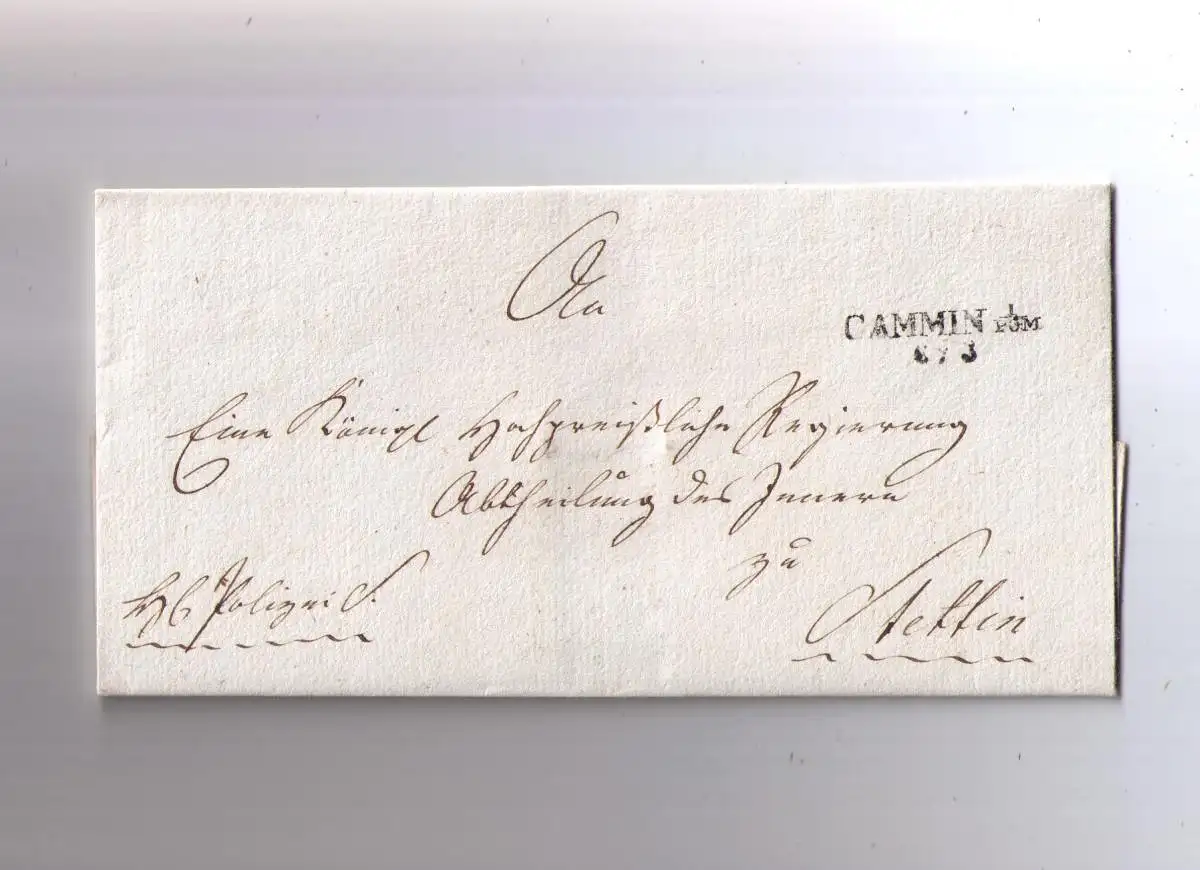 An
CAMMIN I/POM
Eine Königl Hochpreißliche Regierung
Abtheilung des Innern
zu
Polizei S.
Stettin